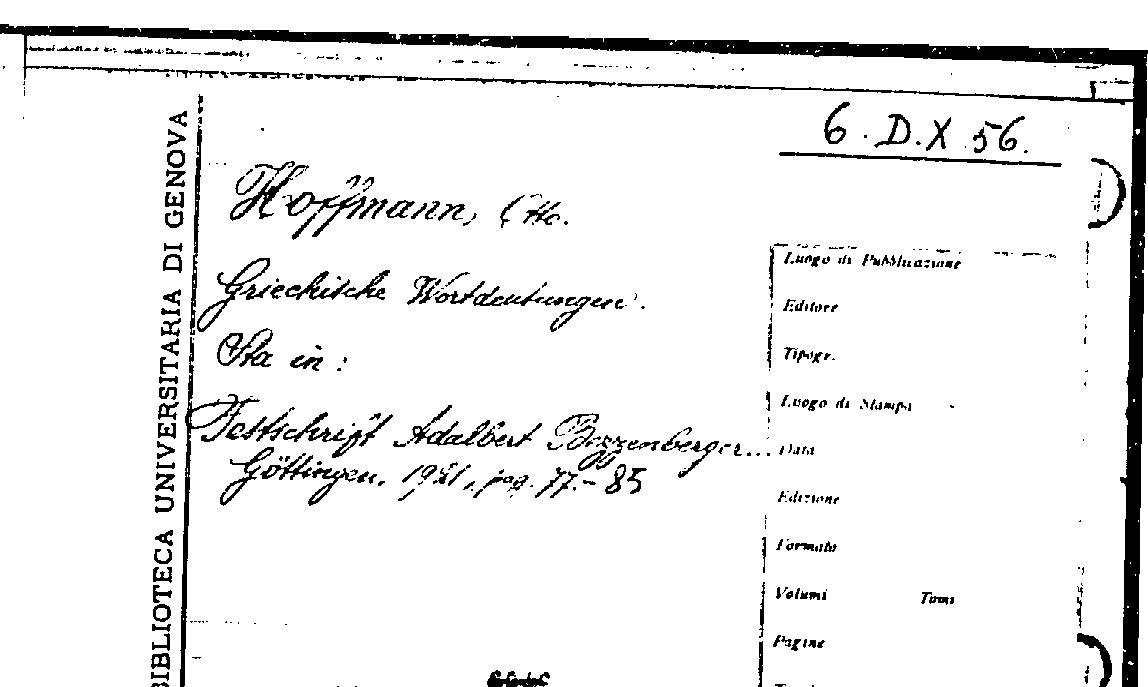 6. D. X 56.
BIBLIOTECA UNIVERSITARIA DI GENOVA
Hoffmann, Otto.
Griechische Wortdeutungen.
Sta in:
Festschrift Adalbert Bezzenberger...
Göttingen, 1921, pag. 77.-85
Luogo di Pubblicazione
Editore
Tipogr.
Luogo di Stampa
Data
Edizione
Formato
Volumi Tomi
Pagine